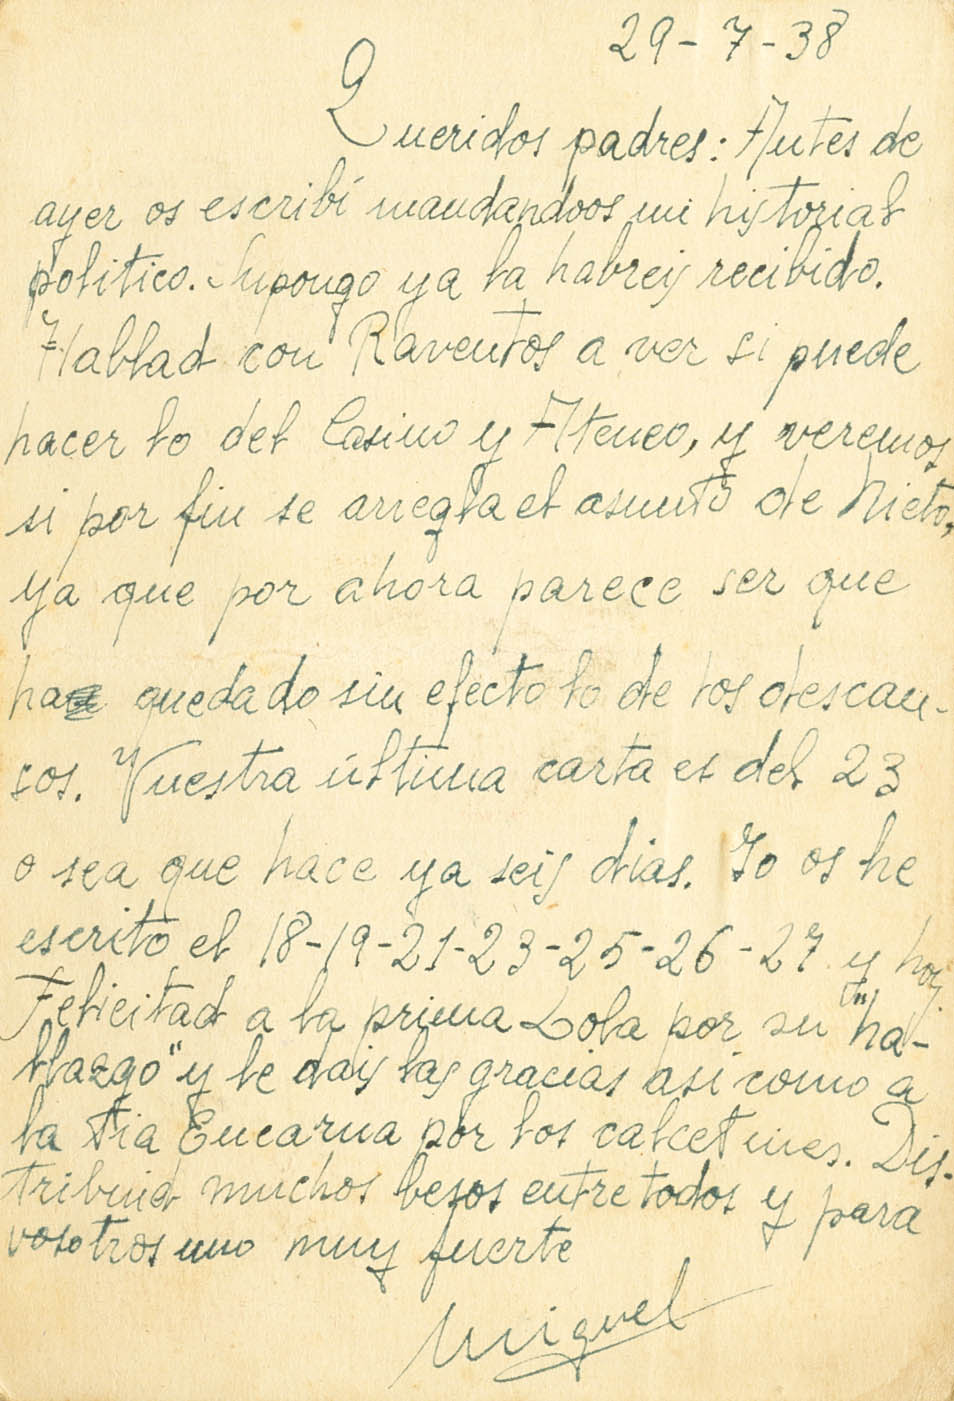 29-7-38
Queridos padres: Antes de
ayer os escribí mandandoos mi historial
politico. Supongo ya la habreis recibido.
Hablad con Raventos a ver si puede
hacer lo del Casino y Ateneo, y veremos
si por fin se arregla el asunto de Nieto,
ya que por ahora parece ser que
ha quedado sin efecto lo de los descan-
sos. Vuestra última carta es del 23
o sea que hace ya seis dias. Yo os he
escrito el 18-19-21-23-25-26-27 y hoy.
Felicitad a la prima Lola por su "ha-
llazgo" y le dais las gracias asi como a
la tia Encarna por los calcetines. Dis-
tribuid muchos besos entre todos y para
vosotros uno muy fuerte
Miguel